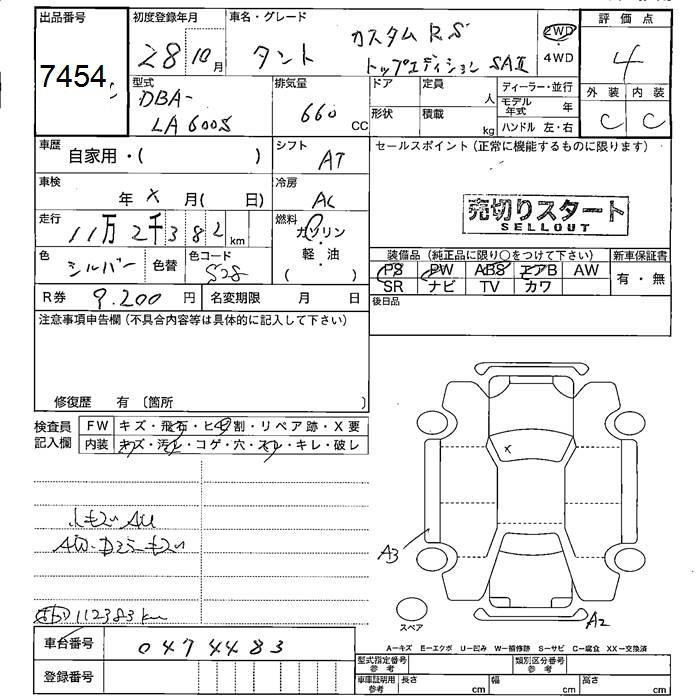 出品番号
7454
初度登録年月
28 10月
車名・グレード
タント カスタム RS
トップエディション SAⅡ
2WD
4WD
評価点
4
外装 内装
C C
型式
DBA-
LA600S
排気量
660 CC
ドア 定員 人
形状 積載 kg
ディーラー・並行
モデル年式 年
ハンドル 左・右
車歴
自家用・( )
シフト
AT
セールスポイント(正常に機能するものに限ります)
車検
年 X 月( 日)
冷房
AC
売切りスタート
SELLOUT
走行
11万2千382 km
燃料
ガソリン
・
軽・油
( )
色
シルバー
色替
色コード
S28
装備品(純正品に限り○をつけて下さい) 新車保証書
PS PW ABS エアB AW
SR ナビ TV カワ
有・無
R券 9.200 円
名変期限 月 日
後日品
注意事項申告欄(不具合内容等は具体的に記入して下さい)
修復歴 有 〔箇所 〕
検査員
記入欄
FW キズ・飛石・ヒビ割・リペア跡・X要
内装 キズ・汚レ・コゲ・穴・スレ・キレ・破レ
X
A3
A2
スペア
112383km
車台番号
0474483
登録番号
A−キズ E−エクボ U−凹み W−補修跡 S−サビ C−腐食 XX−交換済
型式指定番号
参考
類別区分番号
参考
車庫証明用
参考
長さ cm 幅 cm 高さ cm